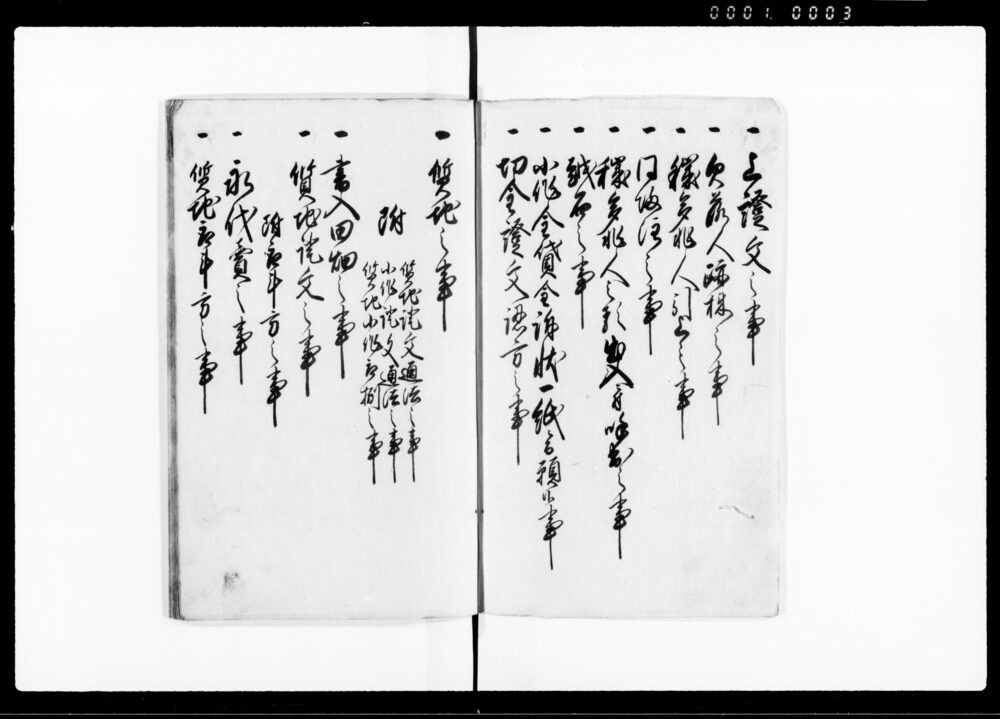 0001. 0003
一 上證文之事
一 欠落人跡株之事
一 穢多非人引上之事
一 同届注之事
一 穢多非人之類 出入 吟味之事
一 之事
一 小作金貸金訴状一紙ニ而願出事
一 切金證文認方之事
一 質地之事
附
質地證文通法之事
小作證文通法之事
質地小作取捌之事
一 書入田畑之事
一 質地證文之事
附取斗方之事
一 永代賣之事
一 質地取斗方之事